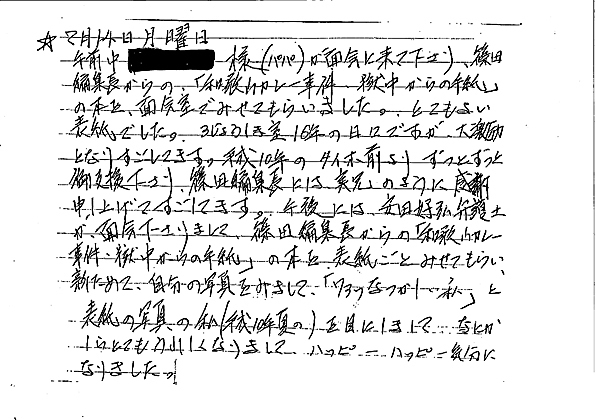 ☆ 7月14日月曜日
午前中 様(パパ)が面会に来て下さり、篠田
編集長からの、「和歌山カレー事件 獄中からの手紙」
の本を、面会室でみせてもらいました。とてもよい
表紙でした。 16年の日々ですが、大激励
となりすごしてます。平成10年のタイホ前より ずっとずっと
御支援下さり、篠田編集長には実兄のように感謝
申し上げてすごしてます。午後には、安田好弘弁護士
が、面会下さりまして、篠田編集長からの「和歌山カレー
事件・獄中からの手紙」の本を表紙ごとみせてもらい、
新ためて、自分の写真をみまして、「ワァッなつかしー私」と
表紙の写真の私(平成10年夏の)を目にしまして なんか
とてもうれしくなりまして、ハッピーハッピー気分に
なりました。